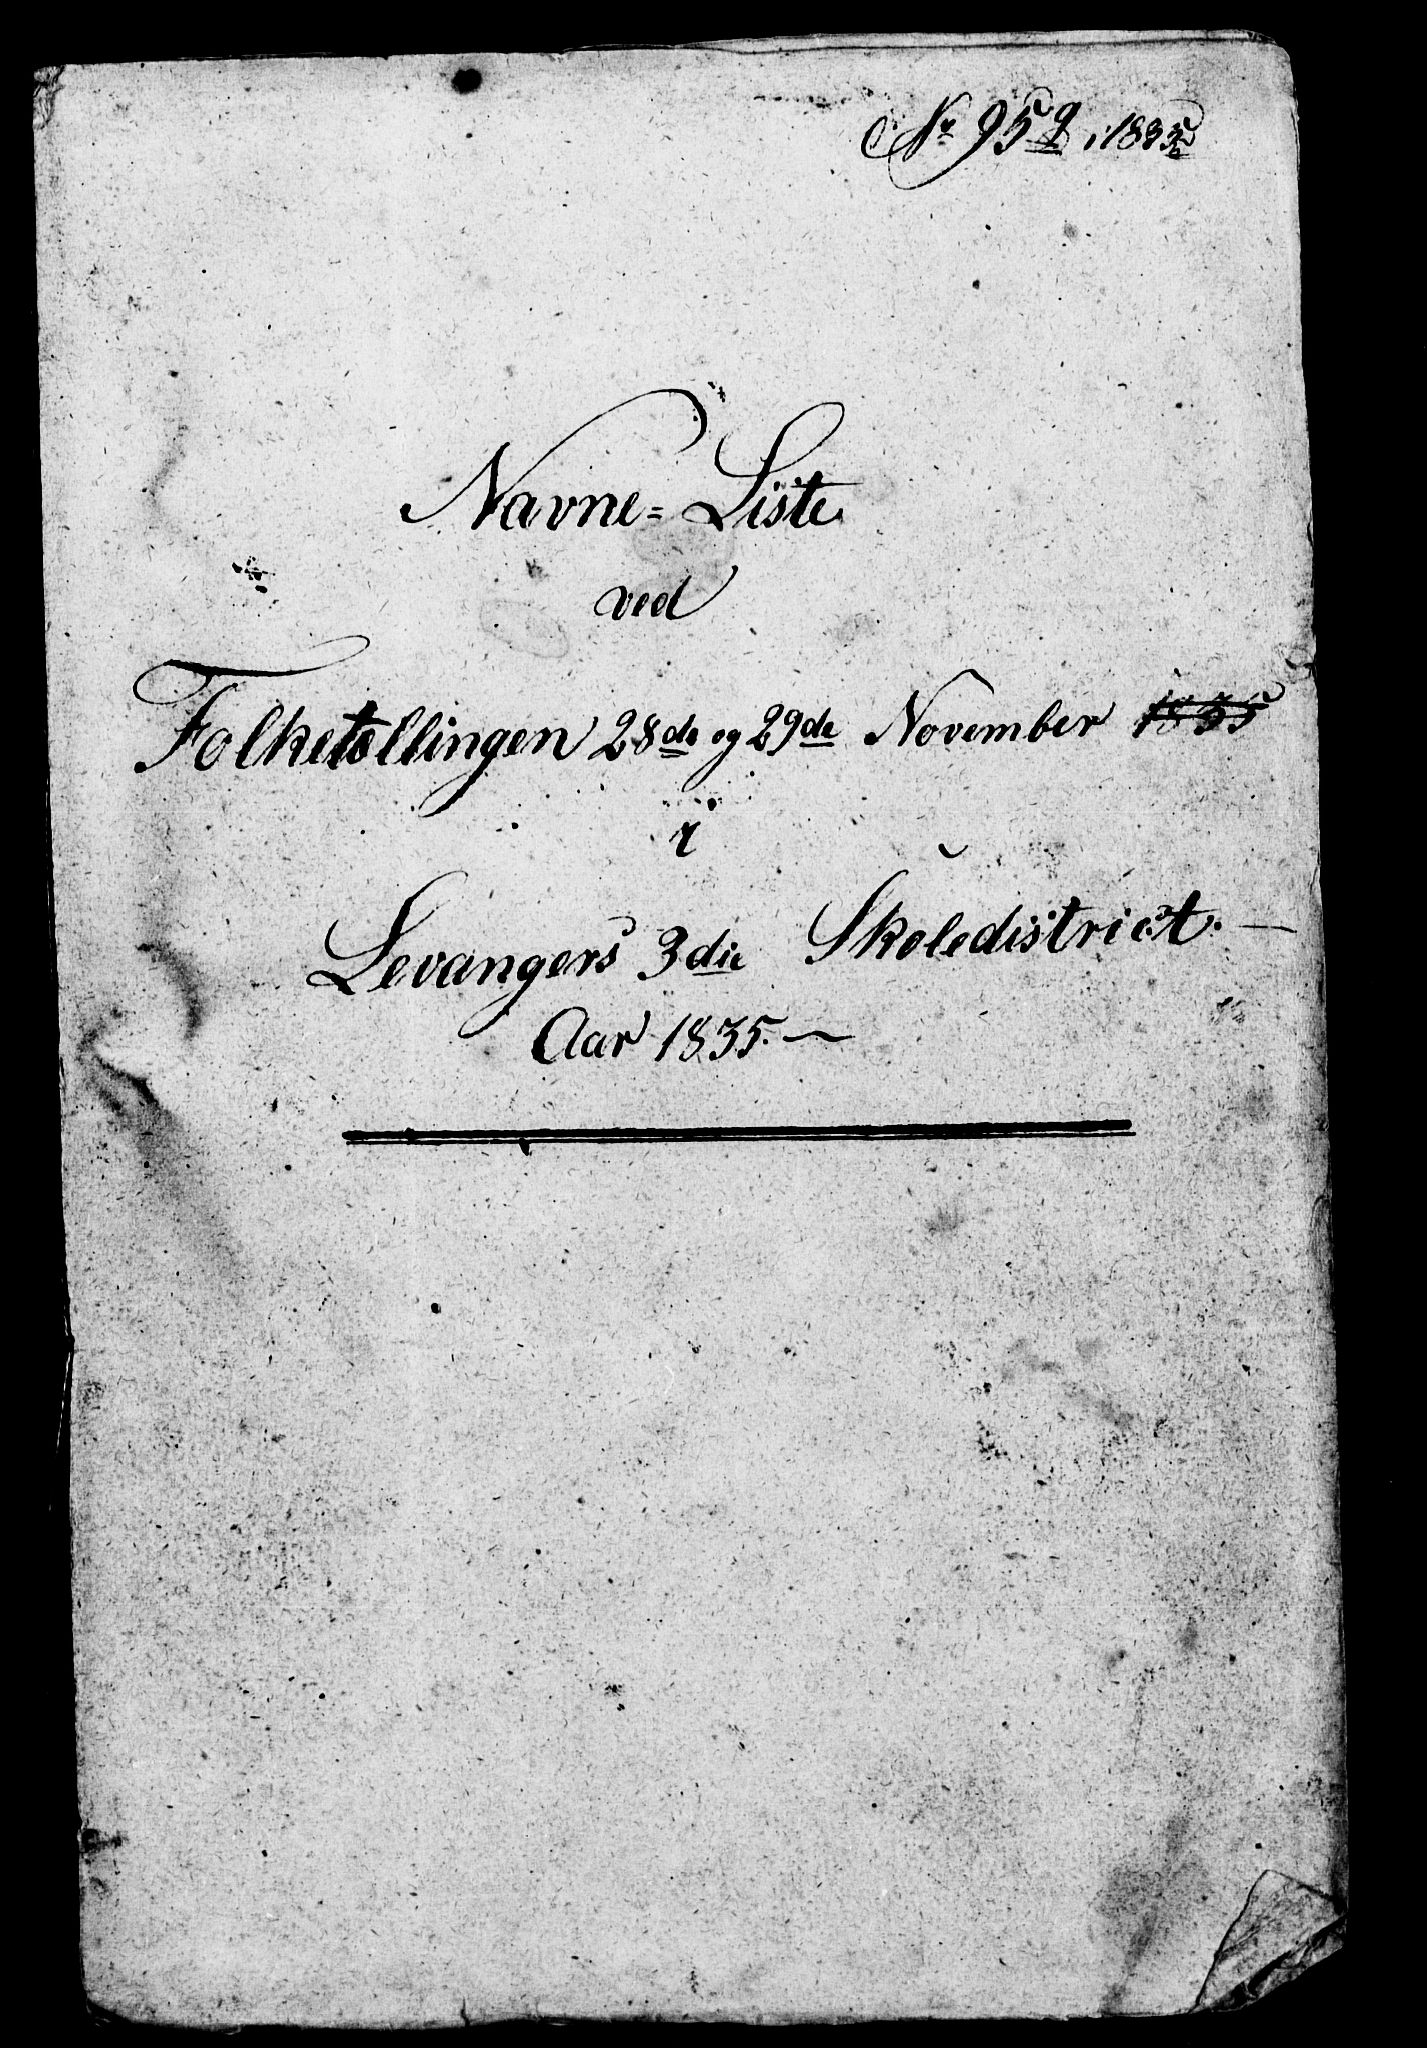 Nr 959, 1835
Navne=Liste
ved
Folketellingen 28de og 29de November 1835
i
Levangers 3die Skoledistrict.
Aar 1835.